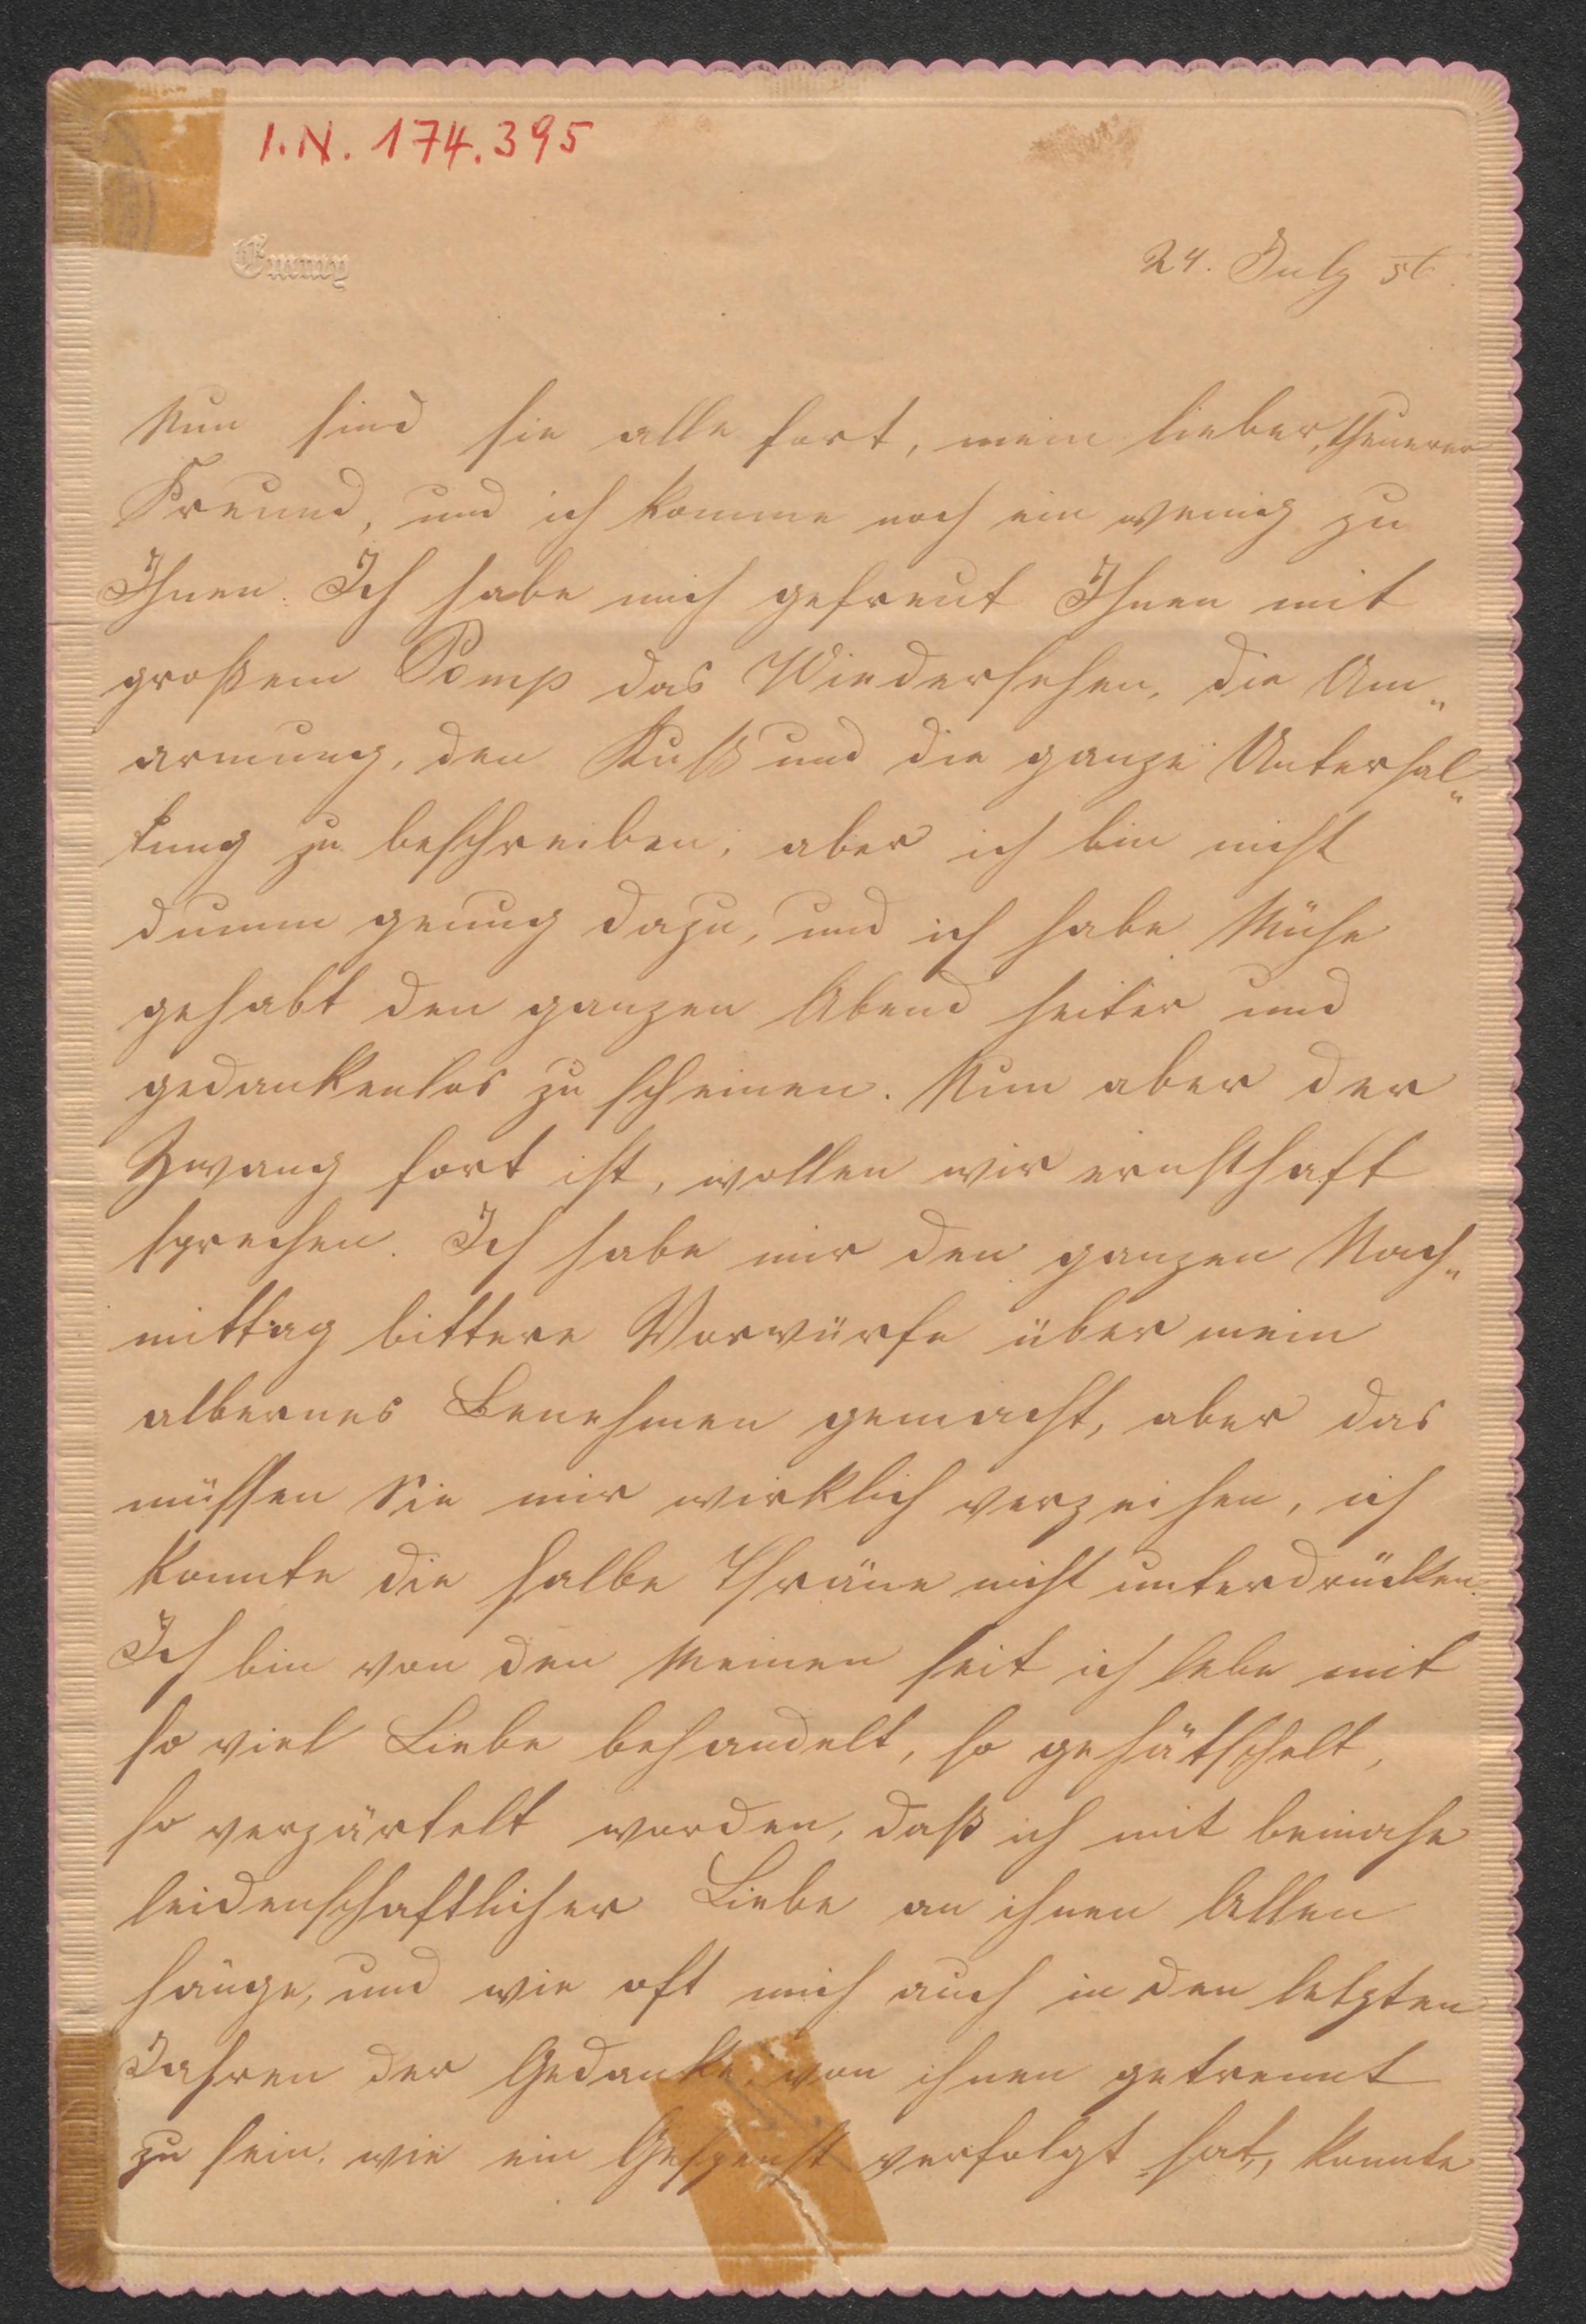 I.N. 174.395
Emmy
24. July 56.
Nun sind sie alle fort, mein lieber, theurer
Freund, und ich komme noch ein wenig zu
Ihnen. Ich habe mich gefreut Ihnen mit
großem Pomp das Wiedersehen, die Um„
armung, den Kuß und die ganze Unterhal„
tung zu beschreiben, aber ich bin nicht
dumm genug dazu, und ich habe Mühe
gehabt den ganzen Abend heiter und
gedankenlos zu scheinen. Nun aber der
Zwang fort ist, wollen wir ernsthaft
sprechen. Ich habe mir den ganzen Nach„
mittag bittere Vorwürfe über mein
albernes Benehmen gemacht, aber das
müssen Sie mir wirklich verzeihen, ich
konnte die halbe Thräne nicht unterdrücken.
Ich bin von den Meinen seit ich lebe mit
so viel Liebe behandelt, so gehätschelt,
so verzärtelt worden, daß ich mit beinahe
leidenschaftlicher Liebe an ihnen Allen
hänge, und wie oft mich auch in den letzten
Jahren der Gedanke, von ihnen getrennt
zu sein, wie ein Gespenst verfolgt hat, konnte